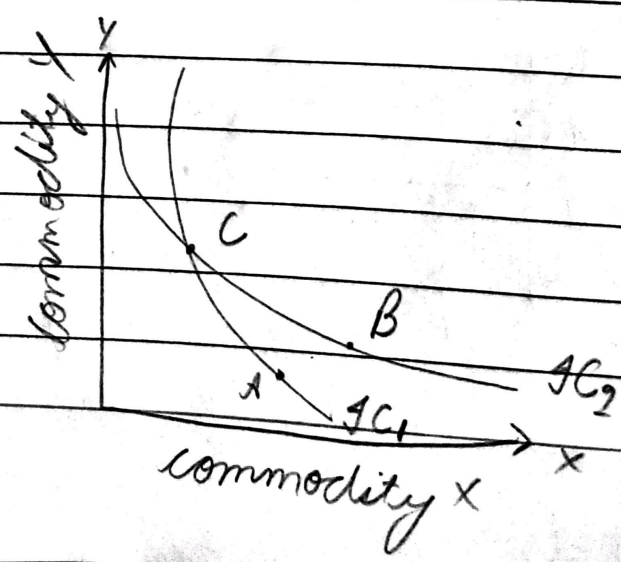 Y
commodity Y
C
B
A
IC1
IC2
X
commodity X